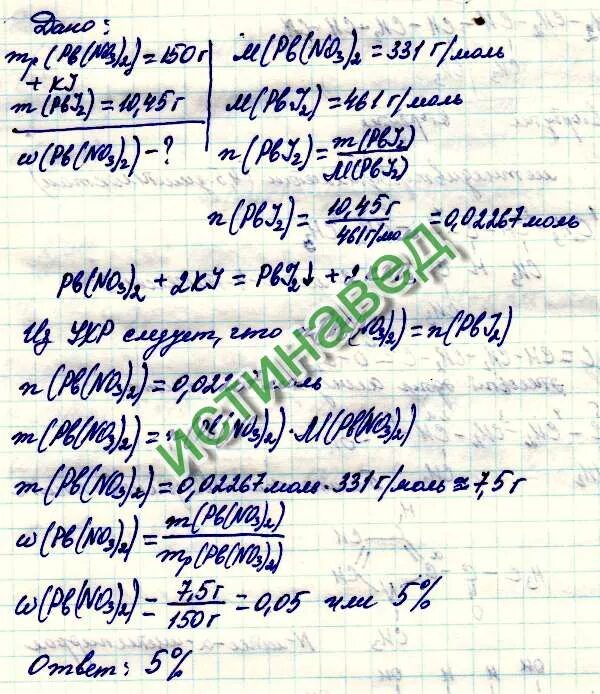 Дано:
mр(Pb(NO3)2)=150г
+ KJ
m(PbJ2)=10,45г
ω(Pb(NO3)2)-?
M(Pb(NO3)2=331 г/моль
M(PbJ2)=461г/моль
n(PbJ2)=m(PbJ2)/M(PbJ2)
n(PbJ2)=10,45г/461г/мо =0,02267моль
Pb(NO3)2+2KJ=PbJ2↓+2
Из УХР следует, что O3)2)=n(PbJ2)
n(Pb(NO3)2)=0,022 моль
m(Pb(NO3)2)= Pb(NO3)2)·M(Pb(NO3)2)
m(Pb(NO3)2)=0,02267моль·331г/моль≈7,5г
ω(Pb(NO3)2)=m(Pb(NO3)2)/mр(Pb(NO3)2)
ω(Pb(NO3)2)=7,5г/150г=0,05 или 5%
Ответ: 5%
истинавед